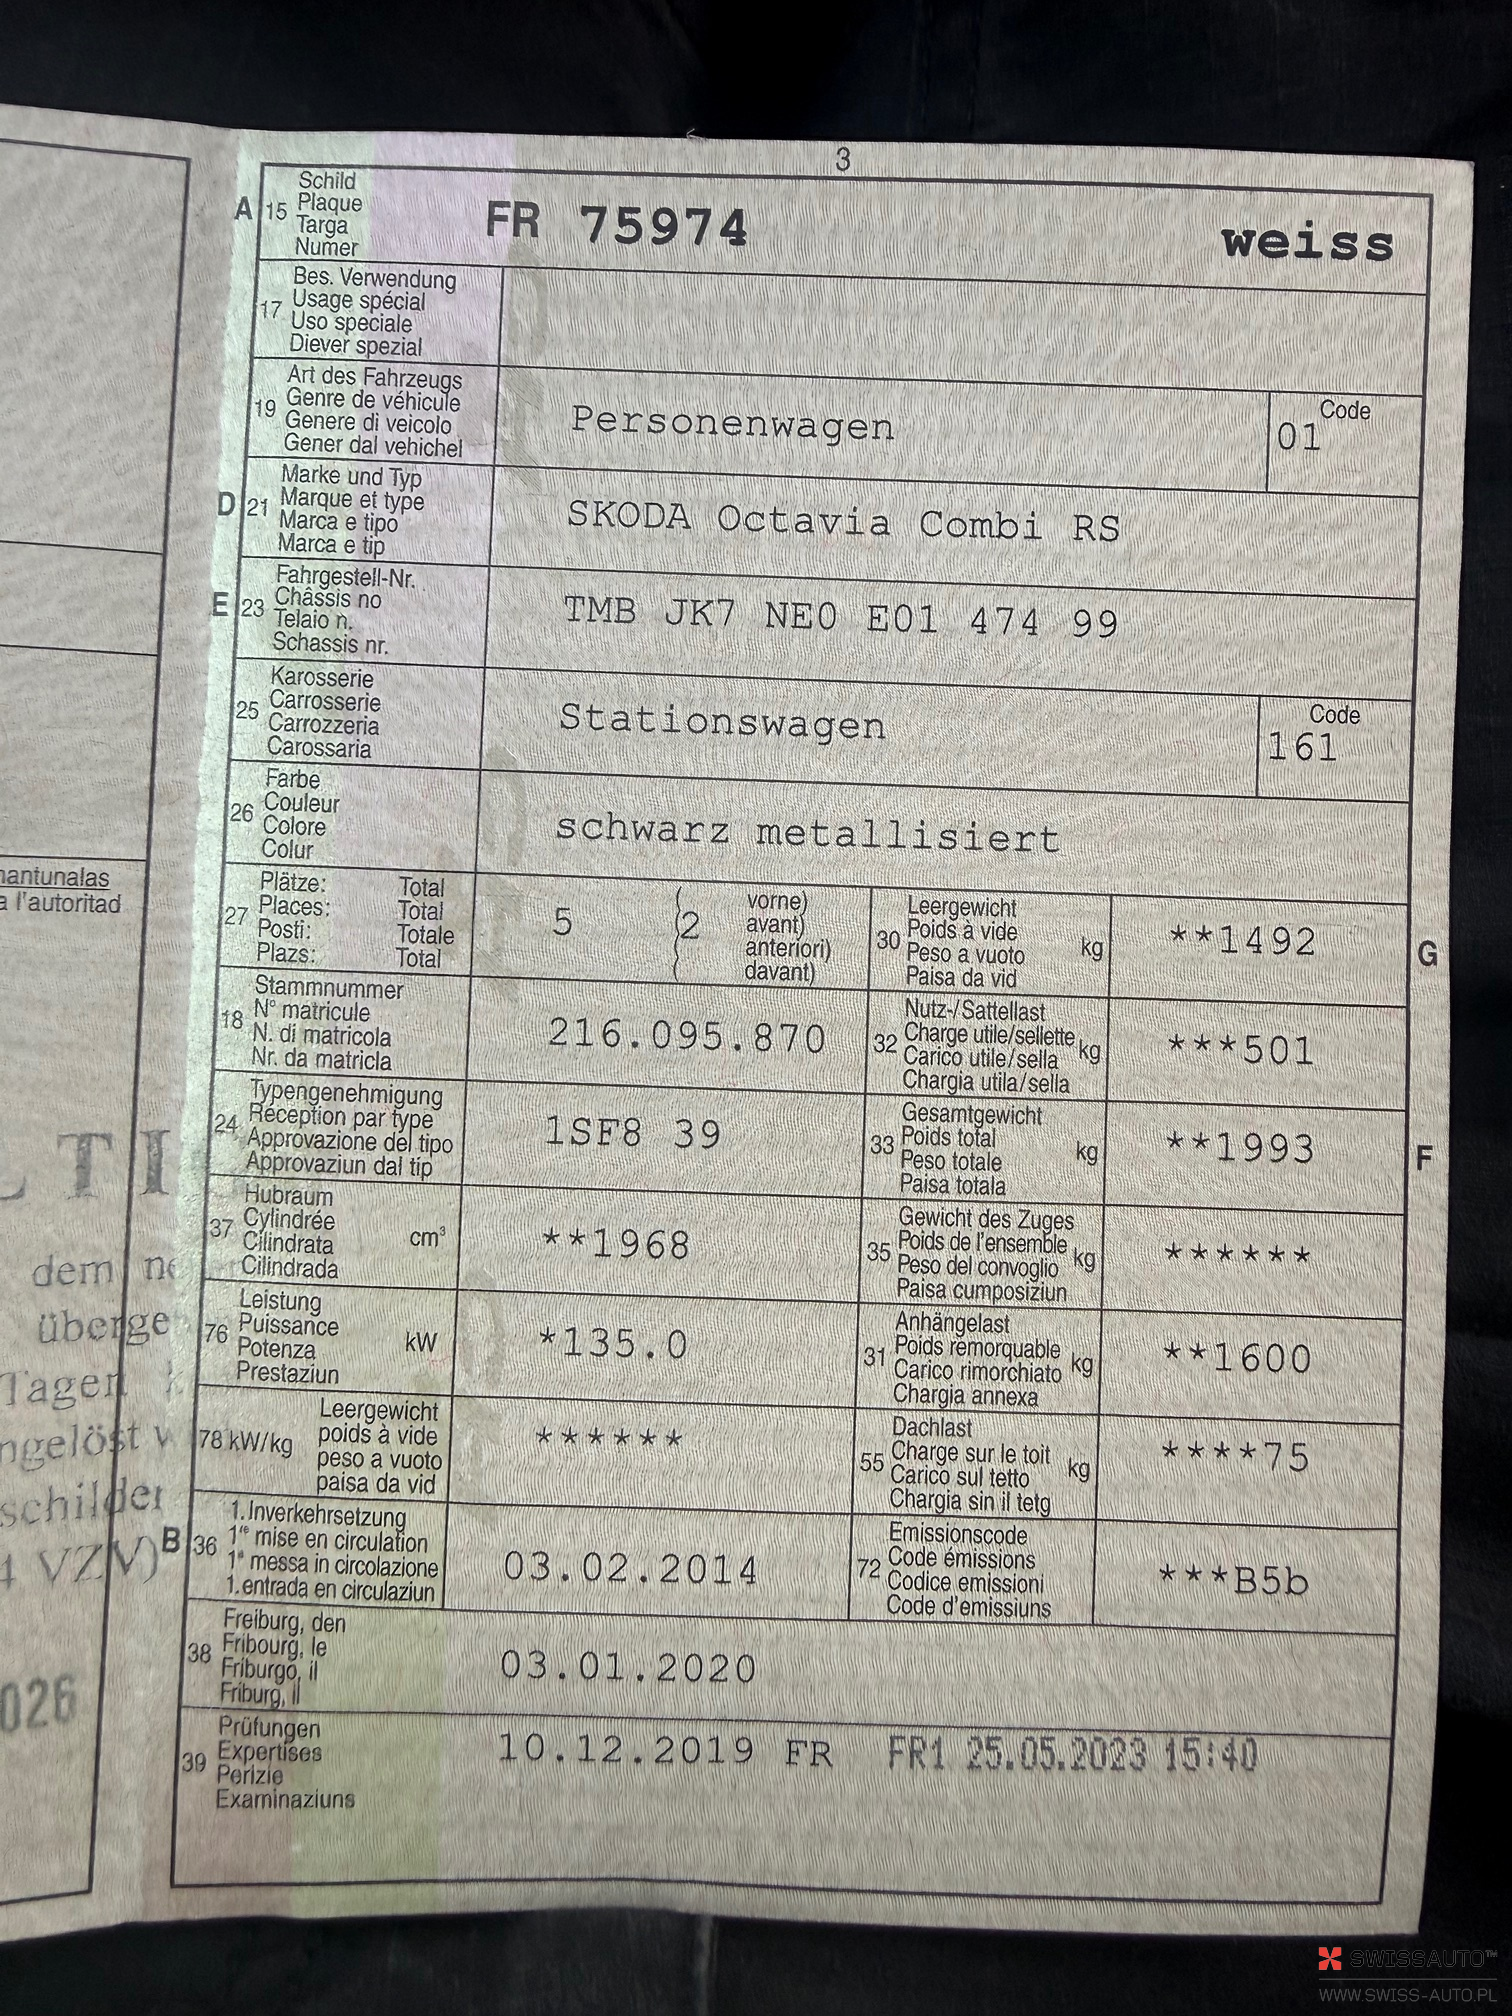 3
A 15 Schild
Plaque
Targa
Numer
FR 75974 weiss
17 Bes. Verwendung
Usage spécial
Uso speciale
Diever spezial
19 Art des Fahrzeugs
Genre de véhicule
Genere di veicolo
Gener dal vehichel
Personenwagen
Code
01
D 21 Marke und Typ
Marque et type
Marca e tipo
Marca e tip
SKODA Octavia Combi RS
E 23 Fahrgestell-Nr.
Châssis no
Telaio n.
Schassis nr.
TMB JK7 NE0 E01 474 99
25 Karosserie
Carrosserie
Carrozzeria
Carossaria
Stationswagen
Code
161
26 Farbe
Couleur
Colore
Colur
schwarz metallisiert
27 Plätze: Total
Places: Total
Posti: Totale
Plazs: Total
5 (2 vorne)
avant)
anteriori)
davant)
30 Leergewicht
Poids à vide
Peso a vuoto
Paisa da vid
kg
**1492
G
18 Stammnummer
N° matricule
N. di matricola
Nr. da matricla
216.095.870
32 Nutz-/Sattellast
Charge utile/sellette
Carico utile/sella
Chargia utila/sella
kg
***501
24 Typengenehmigung
Réception par type
Approvazione del tipo
Approvaziun dal tip
1SF8 39
33 Gesamtgewicht
Poids total
Peso totale
Paisa totala
kg
**1993
F
37 Hubraum
Cylindrée
Cilindrata
Cilindrada
cm³
**1968
35 Gewicht des Zuges
Poids de l'ensemble
Peso del convoglio
Paisa cumposiziun
kg
******
76 Leistung
Puissance
Potenza
Prestaziun
kW
*135.0
31 Anhängelast
Poids remorquable
Carico rimorchiato
Chargia annexa
kg
**1600
78 kW/kg Leergewicht
poids à vide
peso a vuoto
paisa da vid
******
55 Dachlast
Charge sur le toit
Carico sul tetto
Chargia sin il tetg
kg
****75
B 36 1. Inverkehrsetzung
1re mise en circulation
1a messa in circolazione
1. entrada en circulaziun
03.02.2014
72 Emissionscode
Code émissions
Codice emissioni
Code d'emissiuns
***B5b
38 Freiburg, den
Fribourg, le
Friburgo, il
Friburg, il
03.01.2020
39 Prüfungen
Expertises
Perizie
Examinaziuns
10.12.2019 FR FR1 25.05.2023 15:40
nantunalas
a l'autoritad
L TI
dem ne
überge
Tagen
ngelöst w
schilder
4 VZV)
026
SWISSAUTO™
WWW.SWISS-AUTO.PL